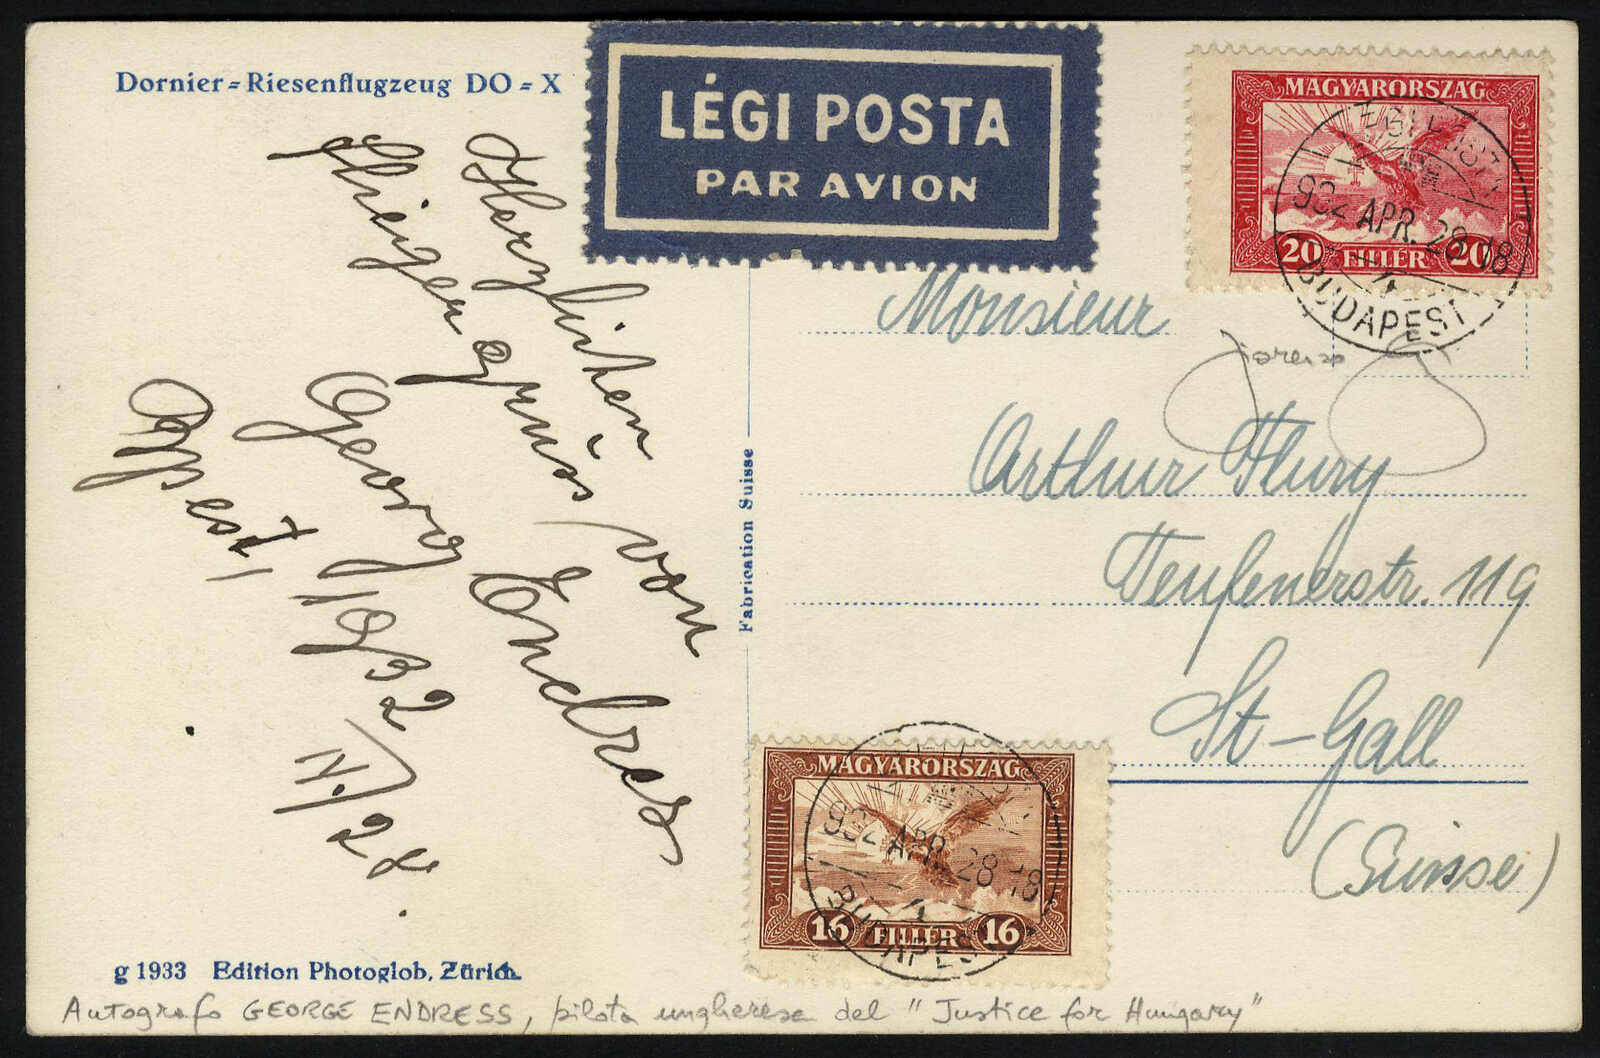 Dornier=Riesenflugzeug DO=X
LÉGI POSTA
PAR AVION
MAGYARORSZÁG
20 FILLÉR 20
LÉGI POSTA
932 APR. 28 18
BUDAPEST
Herzlichen
flieger grüss von
Georg Endres
Bpest, 1932 IV./28.
Monsieur
Arthur Flury
Teufenerstr. 119
St-Gall
(Suisse)
Fabrication Suisse
MAGYARORSZÁG
16 FILLÉR 16
932 APR. 28 18
BUDAPEST
g 1933 Edition Photoglob, Zürich.
Autografo GEORGE ENDRESS, pilota ungherese del "Justice for Hungary"